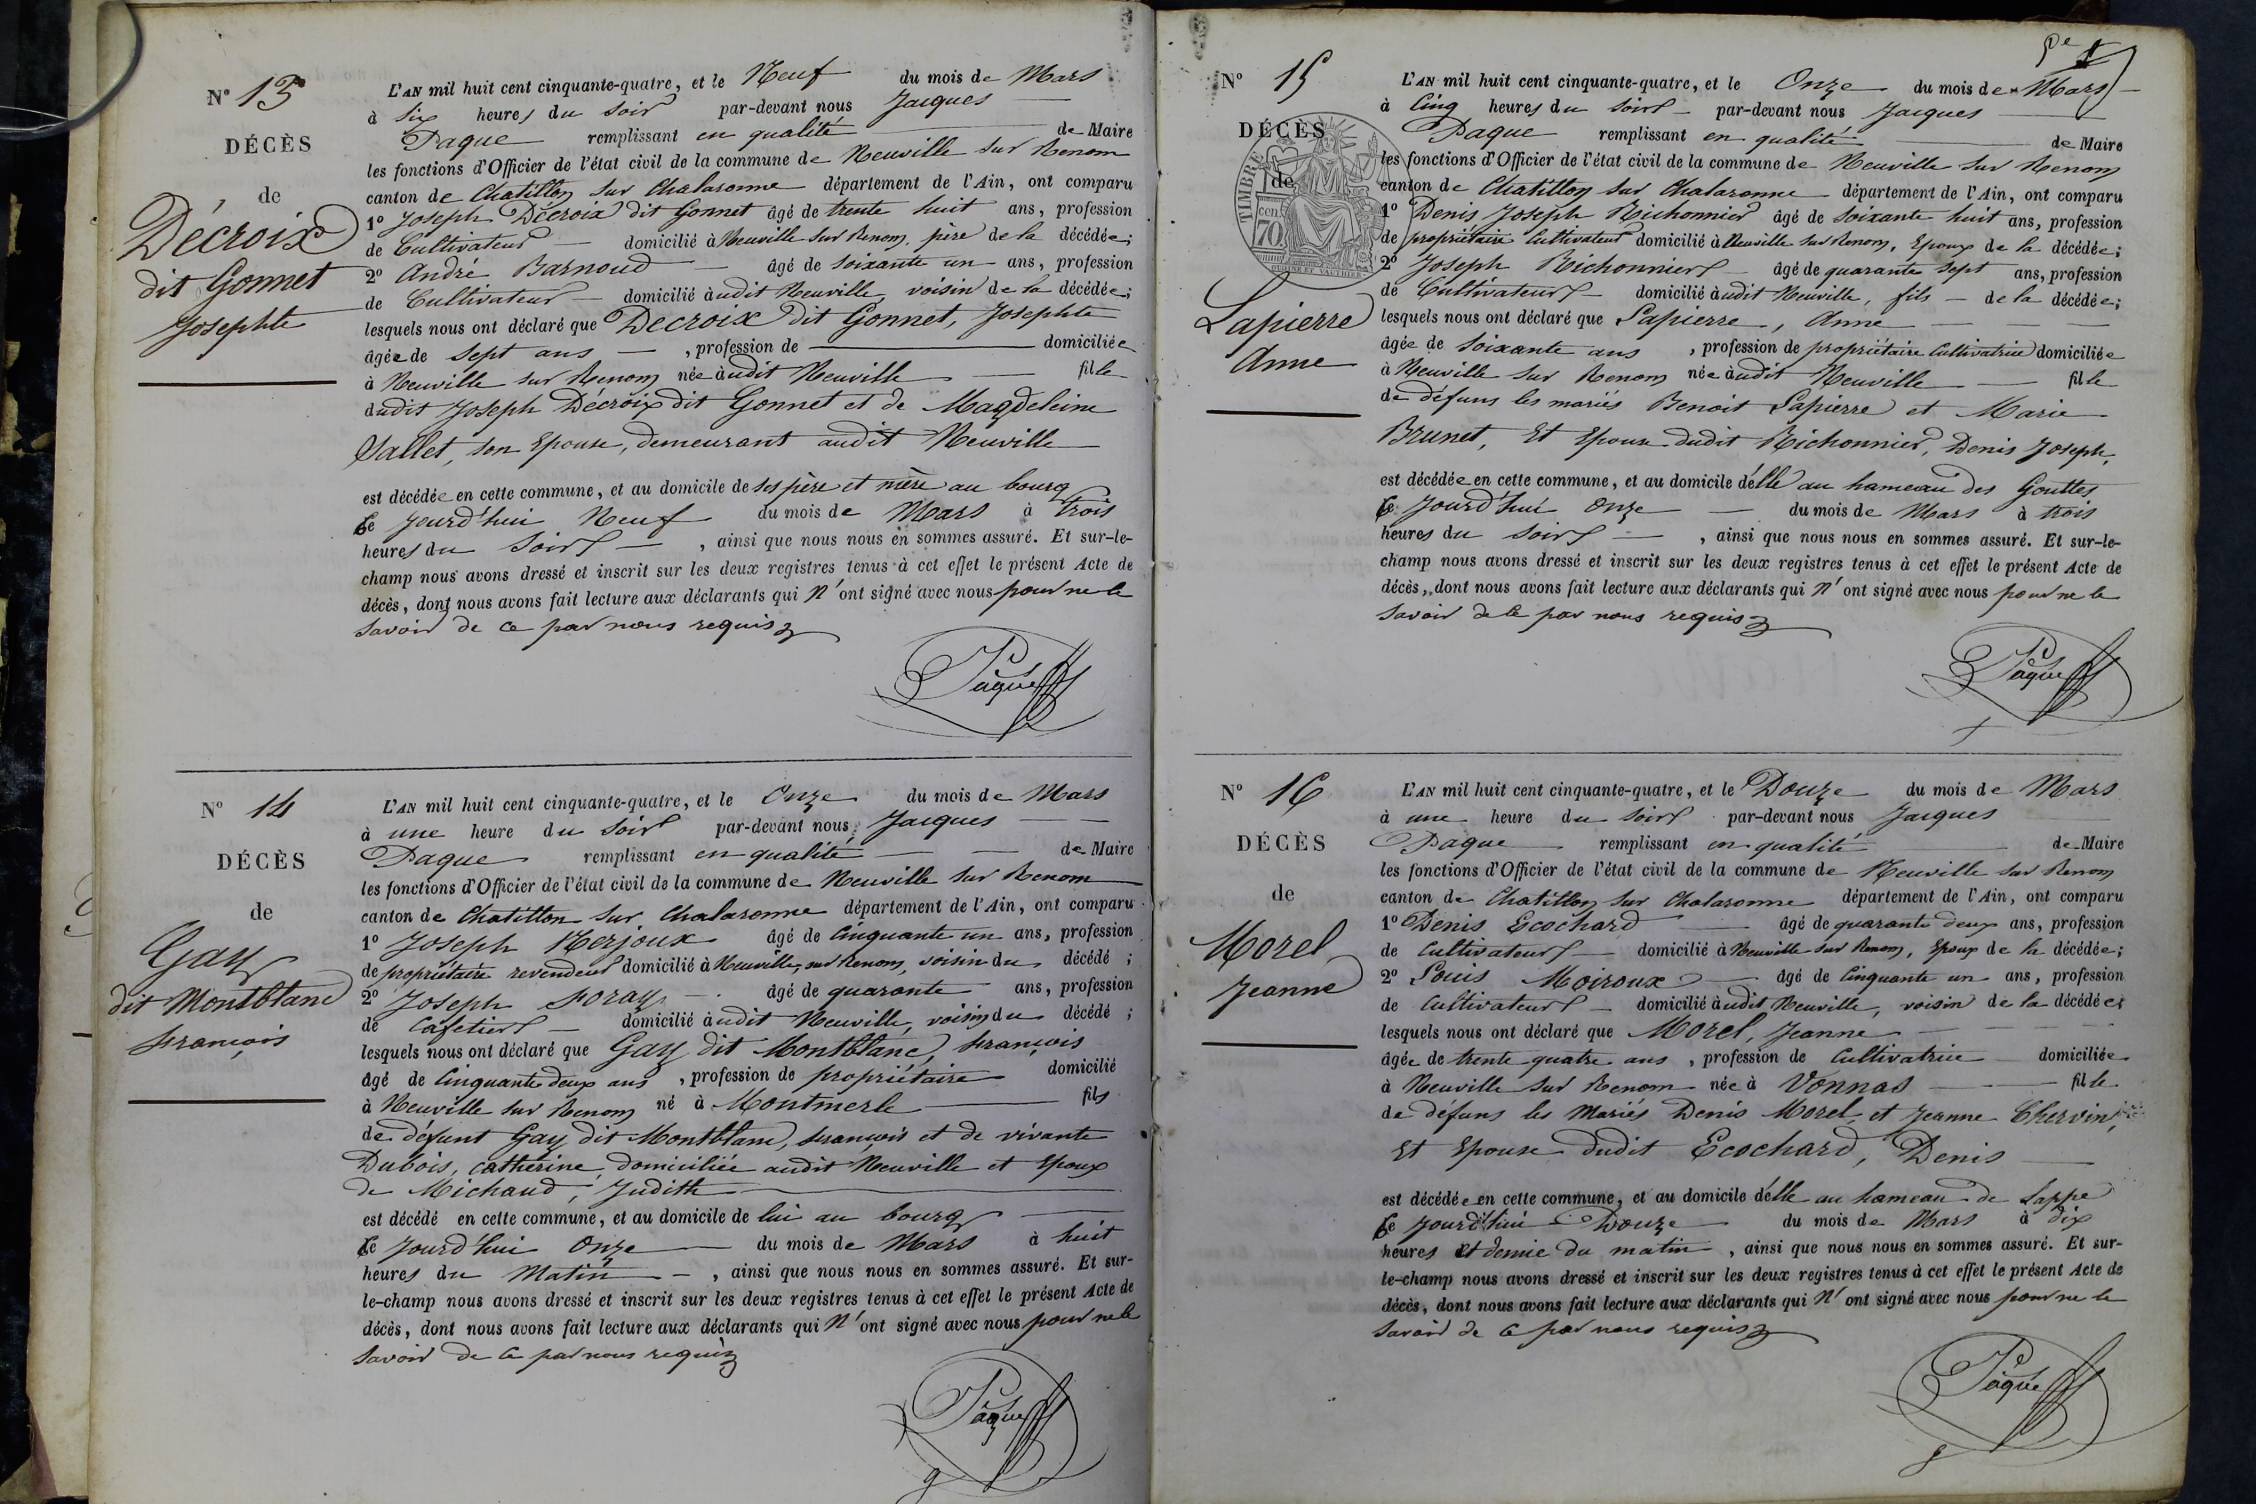 N° 13
DÉCÈS
de
Décroix
dit Gonnet
Josephte
L'AN mil huit cent cinquante-quatre, et le Neuf du mois de Mars
à six heures du soir par-devant nous Jacques
Paque remplissant en qualité de Maire
les fonctions d'Officier de l'état civil de la commune de Neuville sur Renom
canton de Chatillon sur Chalaronne département de l'Ain, ont comparu
1° Joseph Décroix dit Gonnet âgé de trente huit ans, profession
de Cultivateur domicilié à Neuville sur Renom, père de la décédée;
2° André Barnoud âgé de soixante un ans, profession
de Cultivateur domicilié audit Neuville, voisin de la décédée;
lesquels nous ont déclaré que Decroix dit Gonnet, Josephte
âgée de sept ans, profession de domiciliée
à Neuville sur Renom née audit Neuville fille
dudit Joseph Décroix dit Gonnet et de Magdeleine
Sallet, son Epouse, demeurant audit Neuville
est décédée en cette commune, et au domicile de ses père et mère au bourg
Ce jourd'hui Neuf du mois de Mars à trois
heures du Soir, ainsi que nous nous en sommes assuré. Et sur-le-
champ nous avons dressé et inscrit sur les deux registres tenus à cet effet le présent Acte de
décès, dont nous avons fait lecture aux déclarants qui n'ont signé avec nous pour ne le
savoir de ce par nous requis
Pâque
N° 14
DÉCÈS
de
Gay
dit Montblanc
françois
L'AN mil huit cent cinquante-quatre, et le Onze du mois de Mars
à une heure du soir par-devant nous Jacques
Paque remplissant en qualité de Maire
les fonctions d'Officier de l'état civil de la commune de Neuville sur Renom
canton de Chatillon sur Chalaronne département de l'Ain, ont comparu
1° Joseph Merjoux âgé de Cinquante un ans, profession
de propriétaire revendeur domicilié à Neuville sur Renom, voisin du décédé;
2° Joseph foray âgé de quarante ans, profession
de Cafetier domicilié audit Neuville, voisin du décédé;
lesquels nous ont déclaré que Gay dit Montblanc, françois
âgé de Cinquante deux ans, profession de propriétaire domicilié
à Neuville sur Renom né à Montmerle fils
de défunt Gay dit Montblanc, françois et de vivante
Dubois, catherine, domiciliée audit Neuville et Epoux
de Michaud, Judith
est décédé en cette commune, et au domicile de lui au bourg
Ce jourd'hui Onze du mois de Mars à huit
heures du Matin, ainsi que nous nous en sommes assuré. Et sur-
le-champ nous avons dressé et inscrit sur les deux registres tenus à cet effet le présent Acte de
décès, dont nous avons fait lecture aux déclarants qui n'ont signé avec nous pour ne le
savoir de ce par nous requis
Pâque
N° 15
DÉCÈS
de
TIMBRE
70
Lapierre
Anne
L'AN mil huit cent cinquante-quatre, et le Onze du mois de Mars
à Cinq heures du soir par-devant nous Jacques
Paque remplissant en qualité de Maire
les fonctions d'Officier de l'état civil de la commune de Neuville sur Renom
canton de Chatillon sur Chalaronne département de l'Ain, ont comparu
1° Denis Joseph Richonnier âgé de soixante huit ans, profession
de propriétaire Cultivateur domicilié à Neuville sur Renom, Epoux de la décédée;
2° Joseph Richonnier âgé de quarante sept ans, profession
de Cultivateur domicilié audit Neuville, fils de la décédée;
lesquels nous ont déclaré que Lapierre, Anne
âgée de soixante ans, profession de propriétaire Cultivatrice domiciliée
à Neuville sur Renom née audit Neuville fille
de défuns les mariés Benoit Lapierre et Marie
Brunet, Et Epouse dudit Richonnier, Denis Joseph,
est décédée en cette commune, et au domicile d'elle au hameau des Gouttes
Ce jourd'hui Onze du mois de Mars à trois
heures du soir, ainsi que nous nous en sommes assuré. Et sur-le-
champ nous avons dressé et inscrit sur les deux registres tenus à cet effet le présent Acte de
décès, dont nous avons fait lecture aux déclarants qui n'ont signé avec nous pour ne le
savoir de ce par nous requis
Pâque
N° 16
DÉCÈS
de
Morel
Jeanne
L'AN mil huit cent cinquante-quatre, et le Douze du mois de Mars
à une heure du soir par-devant nous Jacques
Paque remplissant en qualité de Maire
les fonctions d'Officier de l'état civil de la commune de Neuville sur Renom
canton de Chatillon sur Chalaronne département de l'Ain, ont comparu
1° Denis Ecochard âgé de quarante deux ans, profession
de Cultivateur domicilié à Neuville sur Renom, Epoux de la décédée;
2° Louis Moiroux âgé de Cinquante un ans, profession
de Cultivateur domicilié audit Neuville, voisin de la décédée;
lesquels nous ont déclaré que Morel, Jeanne
âgée de trente quatre ans, profession de Cultivatrice domiciliée
à Neuville sur Renom née à Vonnas fille
de défuns les Mariés Denis Morel et Jeanne Chervin,
Et Epouse dudit Ecochard, Denis
est décédée en cette commune, et au domicile d'elle au hameau de Sappe
Ce jourd'hui Douze du mois de Mars à dix
heures Et demie du matin, ainsi que nous nous en sommes assuré. Et sur-
le-champ nous avons dressé et inscrit sur les deux registres tenus à cet effet le présent Acte de
décès, dont nous avons fait lecture aux déclarants qui n'ont signé avec nous pour ne le
savoir de ce par nous requis
Pâque